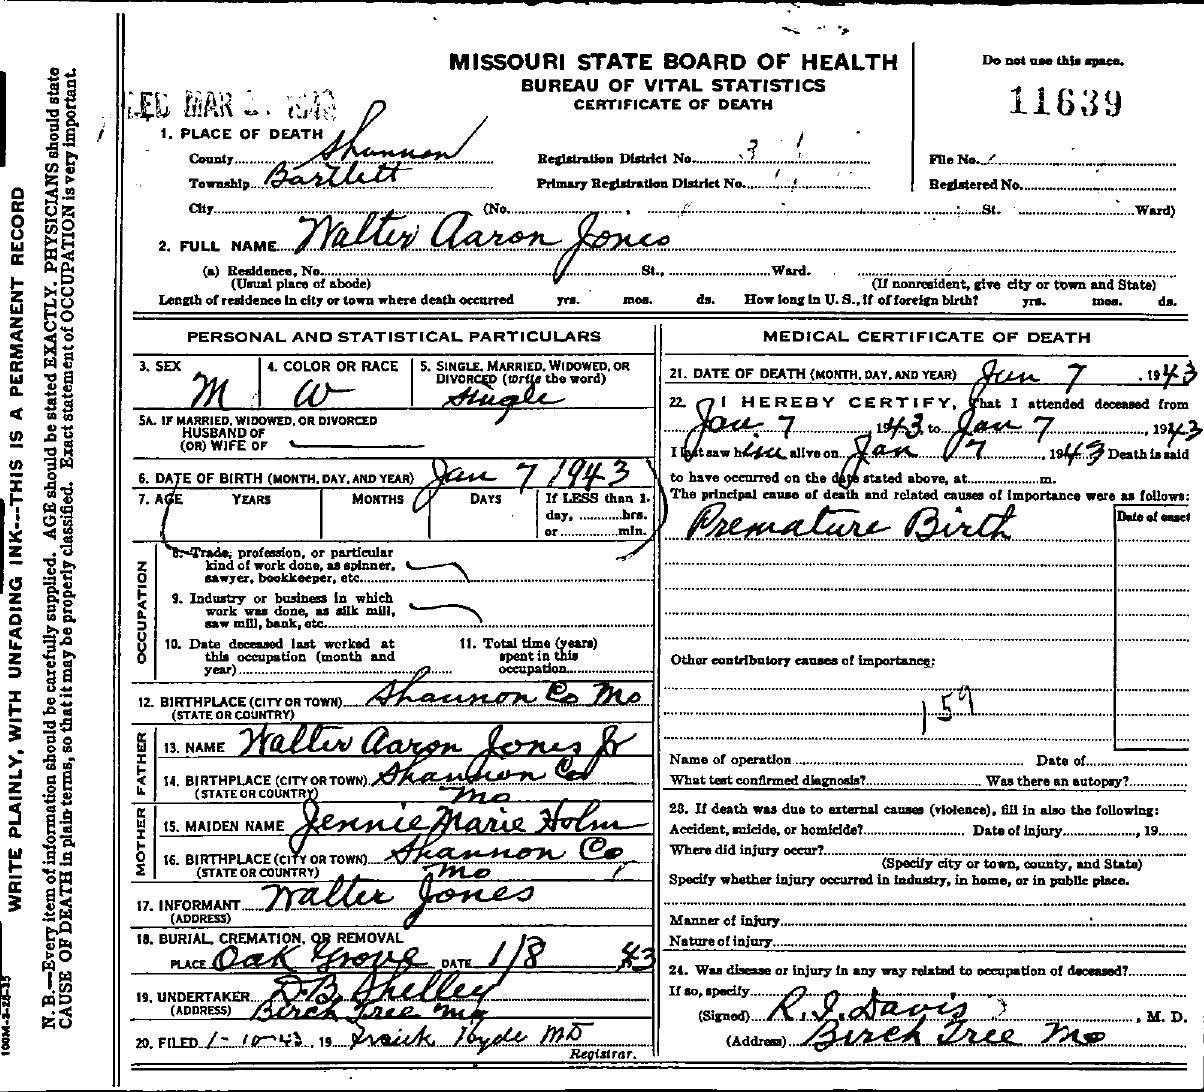 MISSOURI STATE BOARD OF HEALTH
BUREAU OF VITAL STATISTICS
CERTIFICATE OF DEATH
Do not use this space.
11639
MAR
1. PLACE OF DEATH
County Shannon
Township Bartlett
City (No. , St. Ward)
Registration District No.
Primary Registration District No.
File No.
Registered No.
2. FULL NAME Walter Aaron Jones
(a) Residence, No. St., Ward.
(Usual place of abode) (If nonresident, give city or town and State)
Length of residence in city or town where death occurred yrs. mos. ds. How long in U. S., if of foreign birth? yrs. mos. ds.
PERSONAL AND STATISTICAL PARTICULARS
3. SEX M
4. COLOR OR RACE W
5. SINGLE, MARRIED, WIDOWED, OR
DIVORCED (write the word)
Single
5A. IF MARRIED, WIDOWED, OR DIVORCED
HUSBAND OF
(OR) WIFE OF
6. DATE OF BIRTH (MONTH, DAY, AND YEAR) Jan 7 1943
7. AGE YEARS MONTHS DAYS If LESS than 1
day, hrs.
or min.
OCCUPATION
8. Trade, profession, or particular
kind of work done, as spinner,
sawyer, bookkeeper, etc.
9. Industry or business in which
work was done, as silk mill,
saw mill, bank, etc.
10. Date deceased last worked at
this occupation (month and
year)
11. Total time (years)
spent in this
occupation
12. BIRTHPLACE (CITY OR TOWN) Shannon Co Mo
(STATE OR COUNTRY)
FATHER
13. NAME Walter Aaron Jones Jr
14. BIRTHPLACE (CITY OR TOWN) Shannon Co
(STATE OR COUNTRY) Mo
MOTHER
15. MAIDEN NAME Jennie Marie Holm
16. BIRTHPLACE (CITY OR TOWN) Shannon Co
(STATE OR COUNTRY) Mo
17. INFORMANT Walter Jones
(ADDRESS)
18. BURIAL, CREMATION, OR REMOVAL
PLACE Oak Grove DATE 1/8 43
19. UNDERTAKER D.B. Shelley
(ADDRESS) Birch Tree Mo
20. FILED 1-10-43, 19 Frank Hyde MD
Registrar.
MEDICAL CERTIFICATE OF DEATH
21. DATE OF DEATH (MONTH, DAY, AND YEAR) Jan 7 , 1943
22. I HEREBY CERTIFY, That I attended deceased from
Jan 7 1943, to Jan 7 , 1943
I last saw him alive on Jan 7 , 1943 Death is said
to have occurred on the date stated above, at m.
The principal cause of death and related causes of importance were as follows:
Date of onset
Premature Birth
Other contributory causes of importance:
159
Name of operation Date of
What test confirmed diagnosis? Was there an autopsy?
23. If death was due to external causes (violence), fill in also the following:
Accident, suicide, or homicide? Date of injury , 19
Where did injury occur?
(Specify city or town, county, and State)
Specify whether injury occurred in industry, in home, or in public place.
Manner of injury
Nature of injury
24. Was disease or injury in any way related to occupation of deceased?
If so, specify
(Signed) R. I. Davis , M. D.
(Address) Birch Tree Mo
WRITE PLAINLY, WITH UNFADING INK---THIS IS A PERMANENT RECORD
N. B.—Every item of information should be carefully supplied. AGE should be stated EXACTLY. PHYSICIANS should state
CAUSE OF DEATH in plain terms, so that it may be properly classified. Exact statement of OCCUPATION is very important.